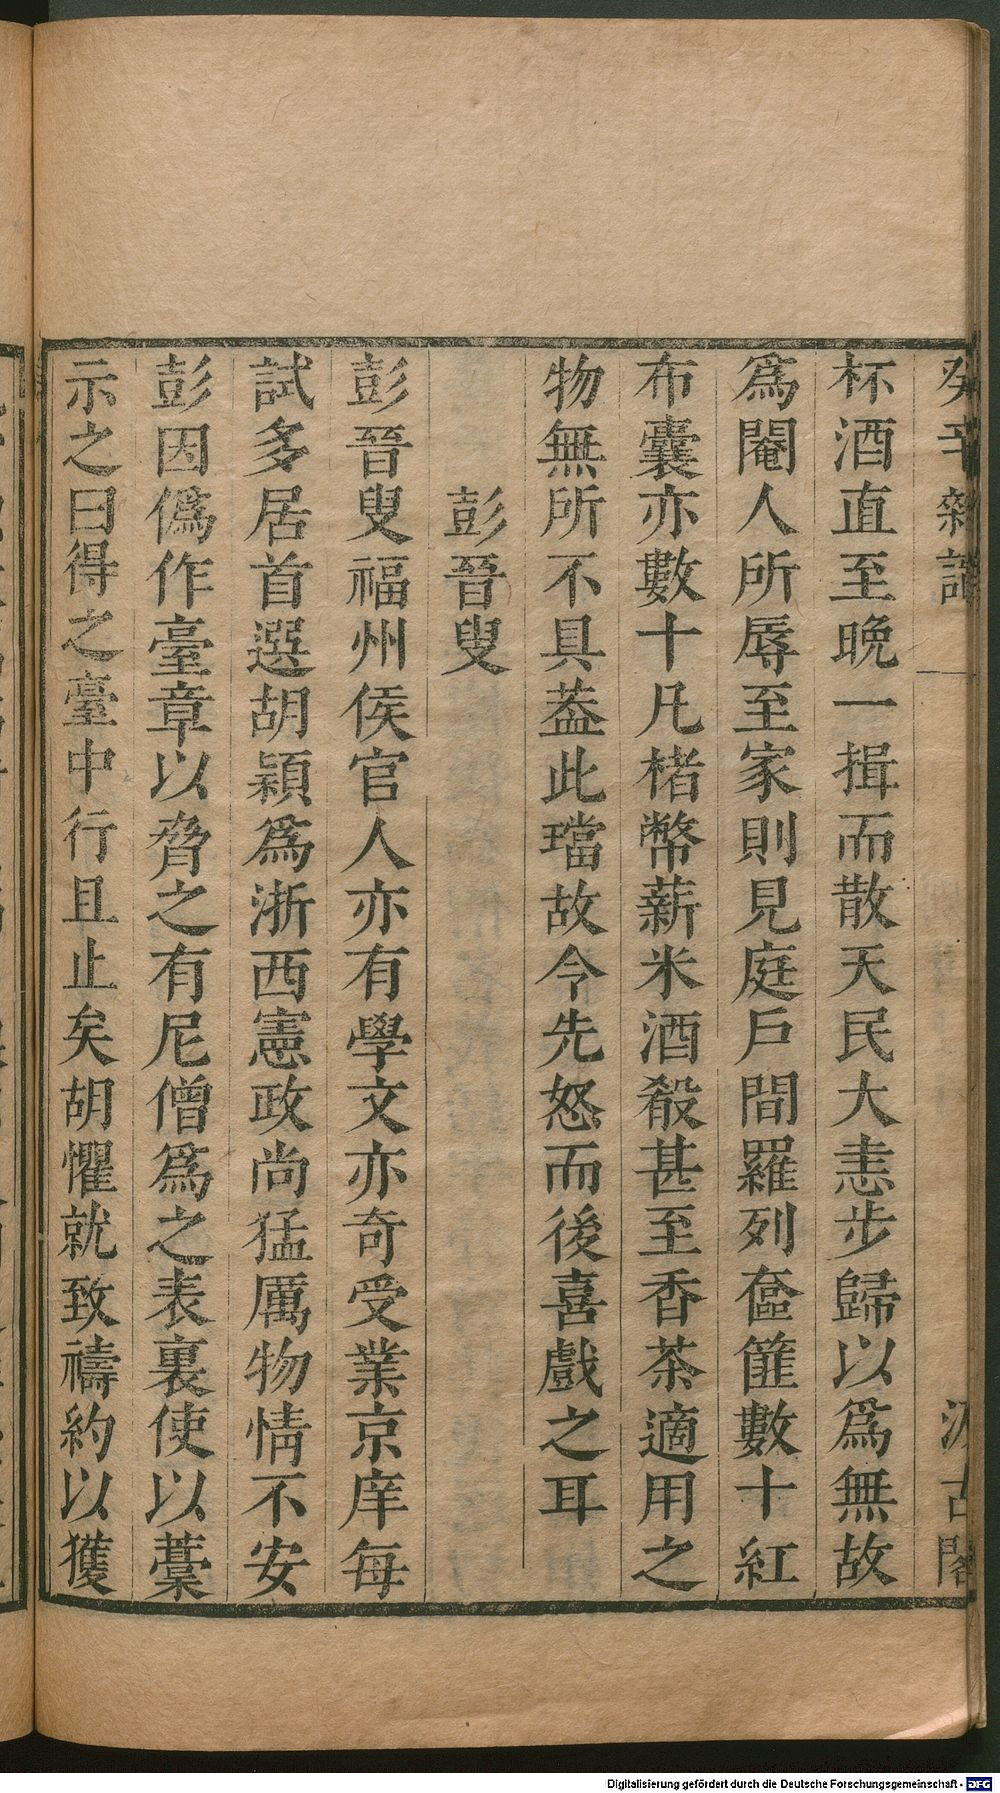 癸辛雜識 汲古閣
杯酒直至晚一揖而散天民大恚步歸以爲無故
爲閹人所辱至家則見庭戶間羅列奩篚數十紅
布囊亦數十凡楮幣薪米酒殽甚至香茶適用之
物無所不具葢此璫故令先怒而後喜戲之耳
彭晉叟
彭晉叟福州侯官人亦有學文亦奇受業京庠每
試多居首選胡穎爲浙西憲政尚猛厲物情不安
彭因僞作臺章以脅之有尼僧爲之表裏使以藁
示之曰得之臺中行且止矣胡懼就致禱約以獲
Digitalisierung gefördert durch die Deutsche Forschungsgemeinschaft - DFG